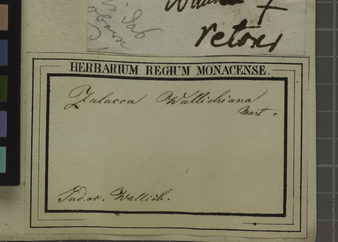 retox
HERBARIUM REGIUM MONACENSE.
Zalacca Wallichiana
Mart.
Ind. or. Wallich.